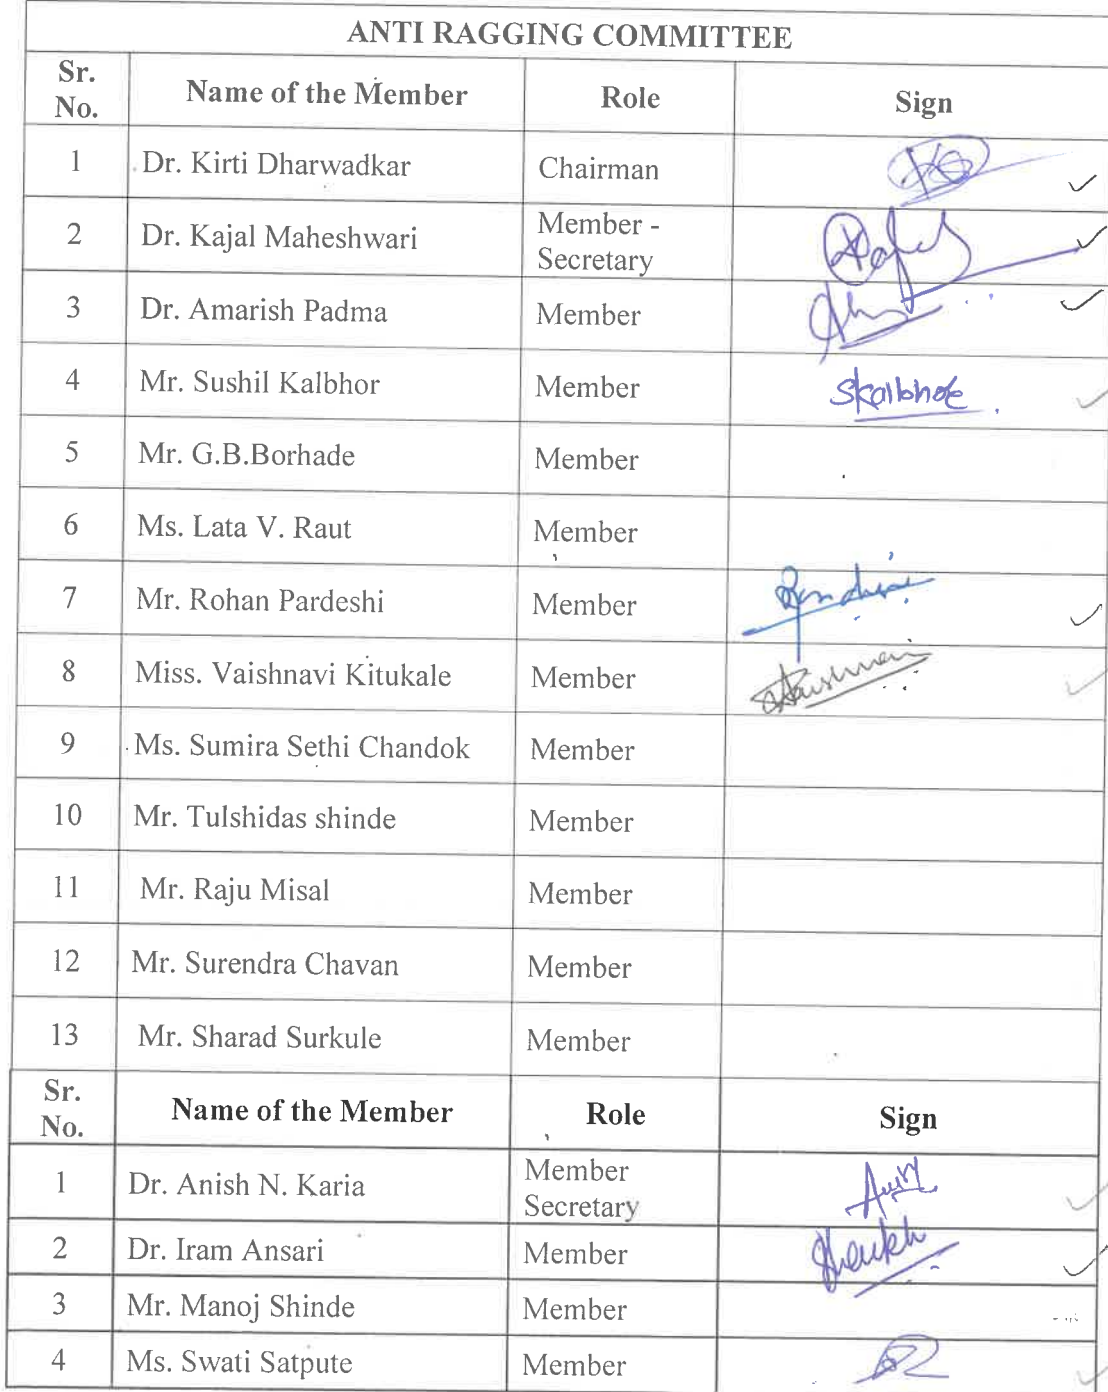 ANTI RAGGING COMMITTEE
Sr. No. Name of the Member Role Sign
1 Dr. Kirti Dharwadkar Chairman
2 Dr. Kajal Maheshwari Member - Secretary
3 Dr. Amarish Padma Member
4 Mr. Sushil Kalbhor Member Skalbhor
5 Mr. G.B.Borhade Member
6 Ms. Lata V. Raut Member
7 Mr. Rohan Pardeshi Member
8 Miss. Vaishnavi Kitukale Member
9 Ms. Sumira Sethi Chandok Member
10 Mr. Tulshidas shinde Member
11 Mr. Raju Misal Member
12 Mr. Surendra Chavan Member
13 Mr. Sharad Surkule Member
Sr. No. Name of the Member Role Sign
1 Dr. Anish N. Karia Member Secretary
2 Dr. Iram Ansari Member
3 Mr. Manoj Shinde Member
4 Ms. Swati Satpute Member